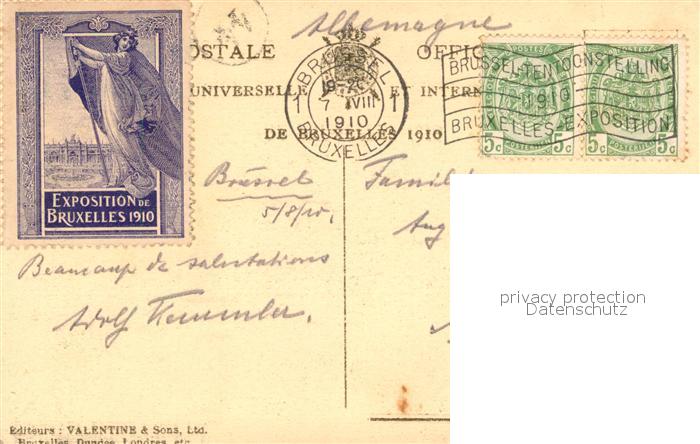 Allemagne
POSTALE OFFIC
UNIVERSELLE ET INTERN
DE BRUXELLES 1910
BRUSSEL
1 7 VIII 1
1910
BRUXELLES
POSTES POSTES
BRUSSEL-TENTOONSTELLING
1910
BRUXELLES-EXPOSITION
5c 5c 5c 5c
POSTERIJEN POSTERIJEN
EXPOSITION DE
BRUXELLES 1910
Brüssel Famil
5/8/10. Aug
Beaucoup de salutations
Adolf
privacy protection
Datenschutz
Editeurs : VALENTINE & Sons, Ltd.
Bruxelles, Dundee, Londres, etc.